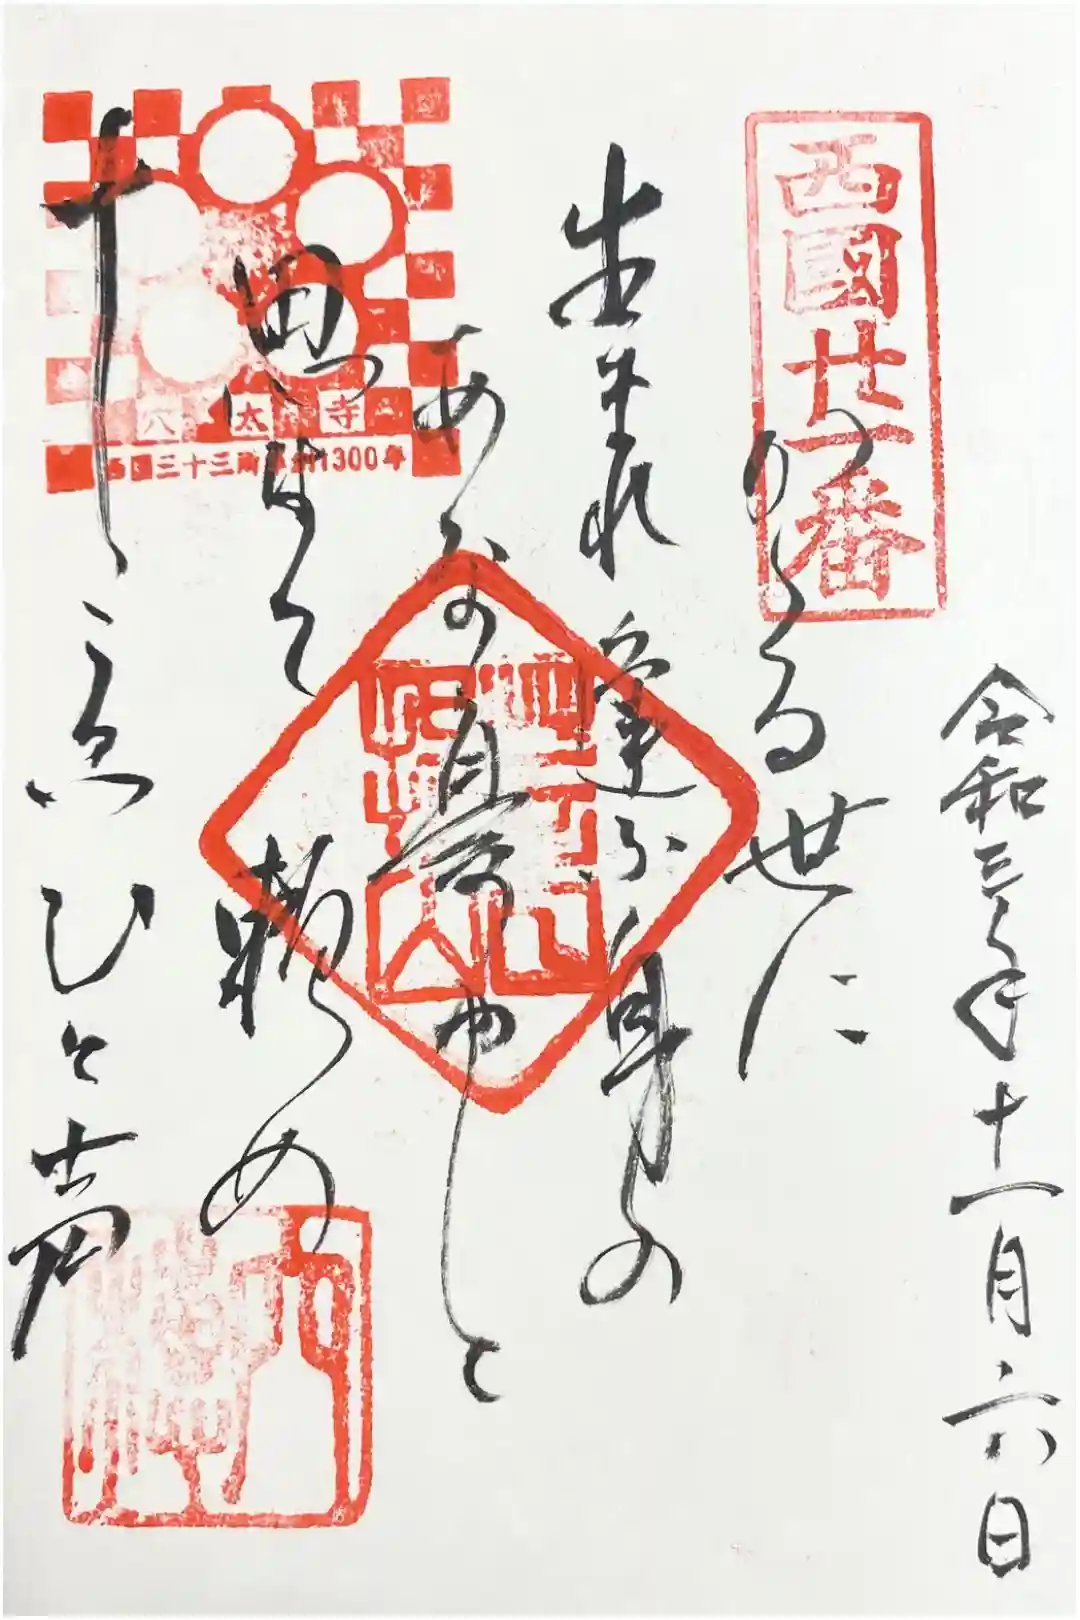 西國廿一番
令和三年十一月六日
かゝる世に
生まれ逢ふ身の
あな憂やと
思はて頼め
十こゑひと声
穴太寺
西国三十三所草創1300年